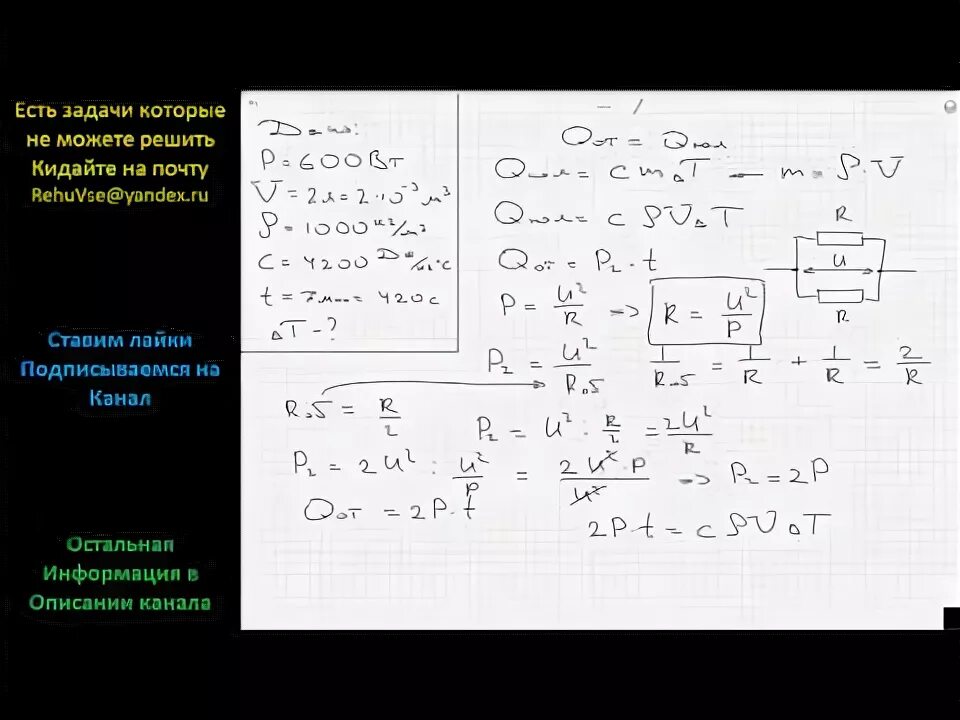 Есть задачи которые
не можете решить
Кидайте на почту
RehuVse@yandex.ru
Ставим лайки
Подписываемся на
Канал
Остальная
Информация в
Описании канала
Дано:
P = 600 Вт
V = 2л = 2·10⁻³ м³
ρ = 1000 кг/м³
c = 4200 Дж/кг·°C
t = 7мин = 420 с
ΔT - ?
Qот = Qпол
Qпол = c m ΔT — m = ρ·V
Qпол = c ρ V ΔT
Qот = P₂·t
P = U²/R → R = U²/P
R
U
R
P₂ = U²/Rоб
1/Rоб = 1/R + 1/R = 2/R
Rоб = R/2
P₂ = U² : R/2 = 2U²/R
P₂ = 2U² : U²/P = 2U²·P/U² → P₂ = 2P
Qот = 2P·t
2P·t = c ρ V ΔT